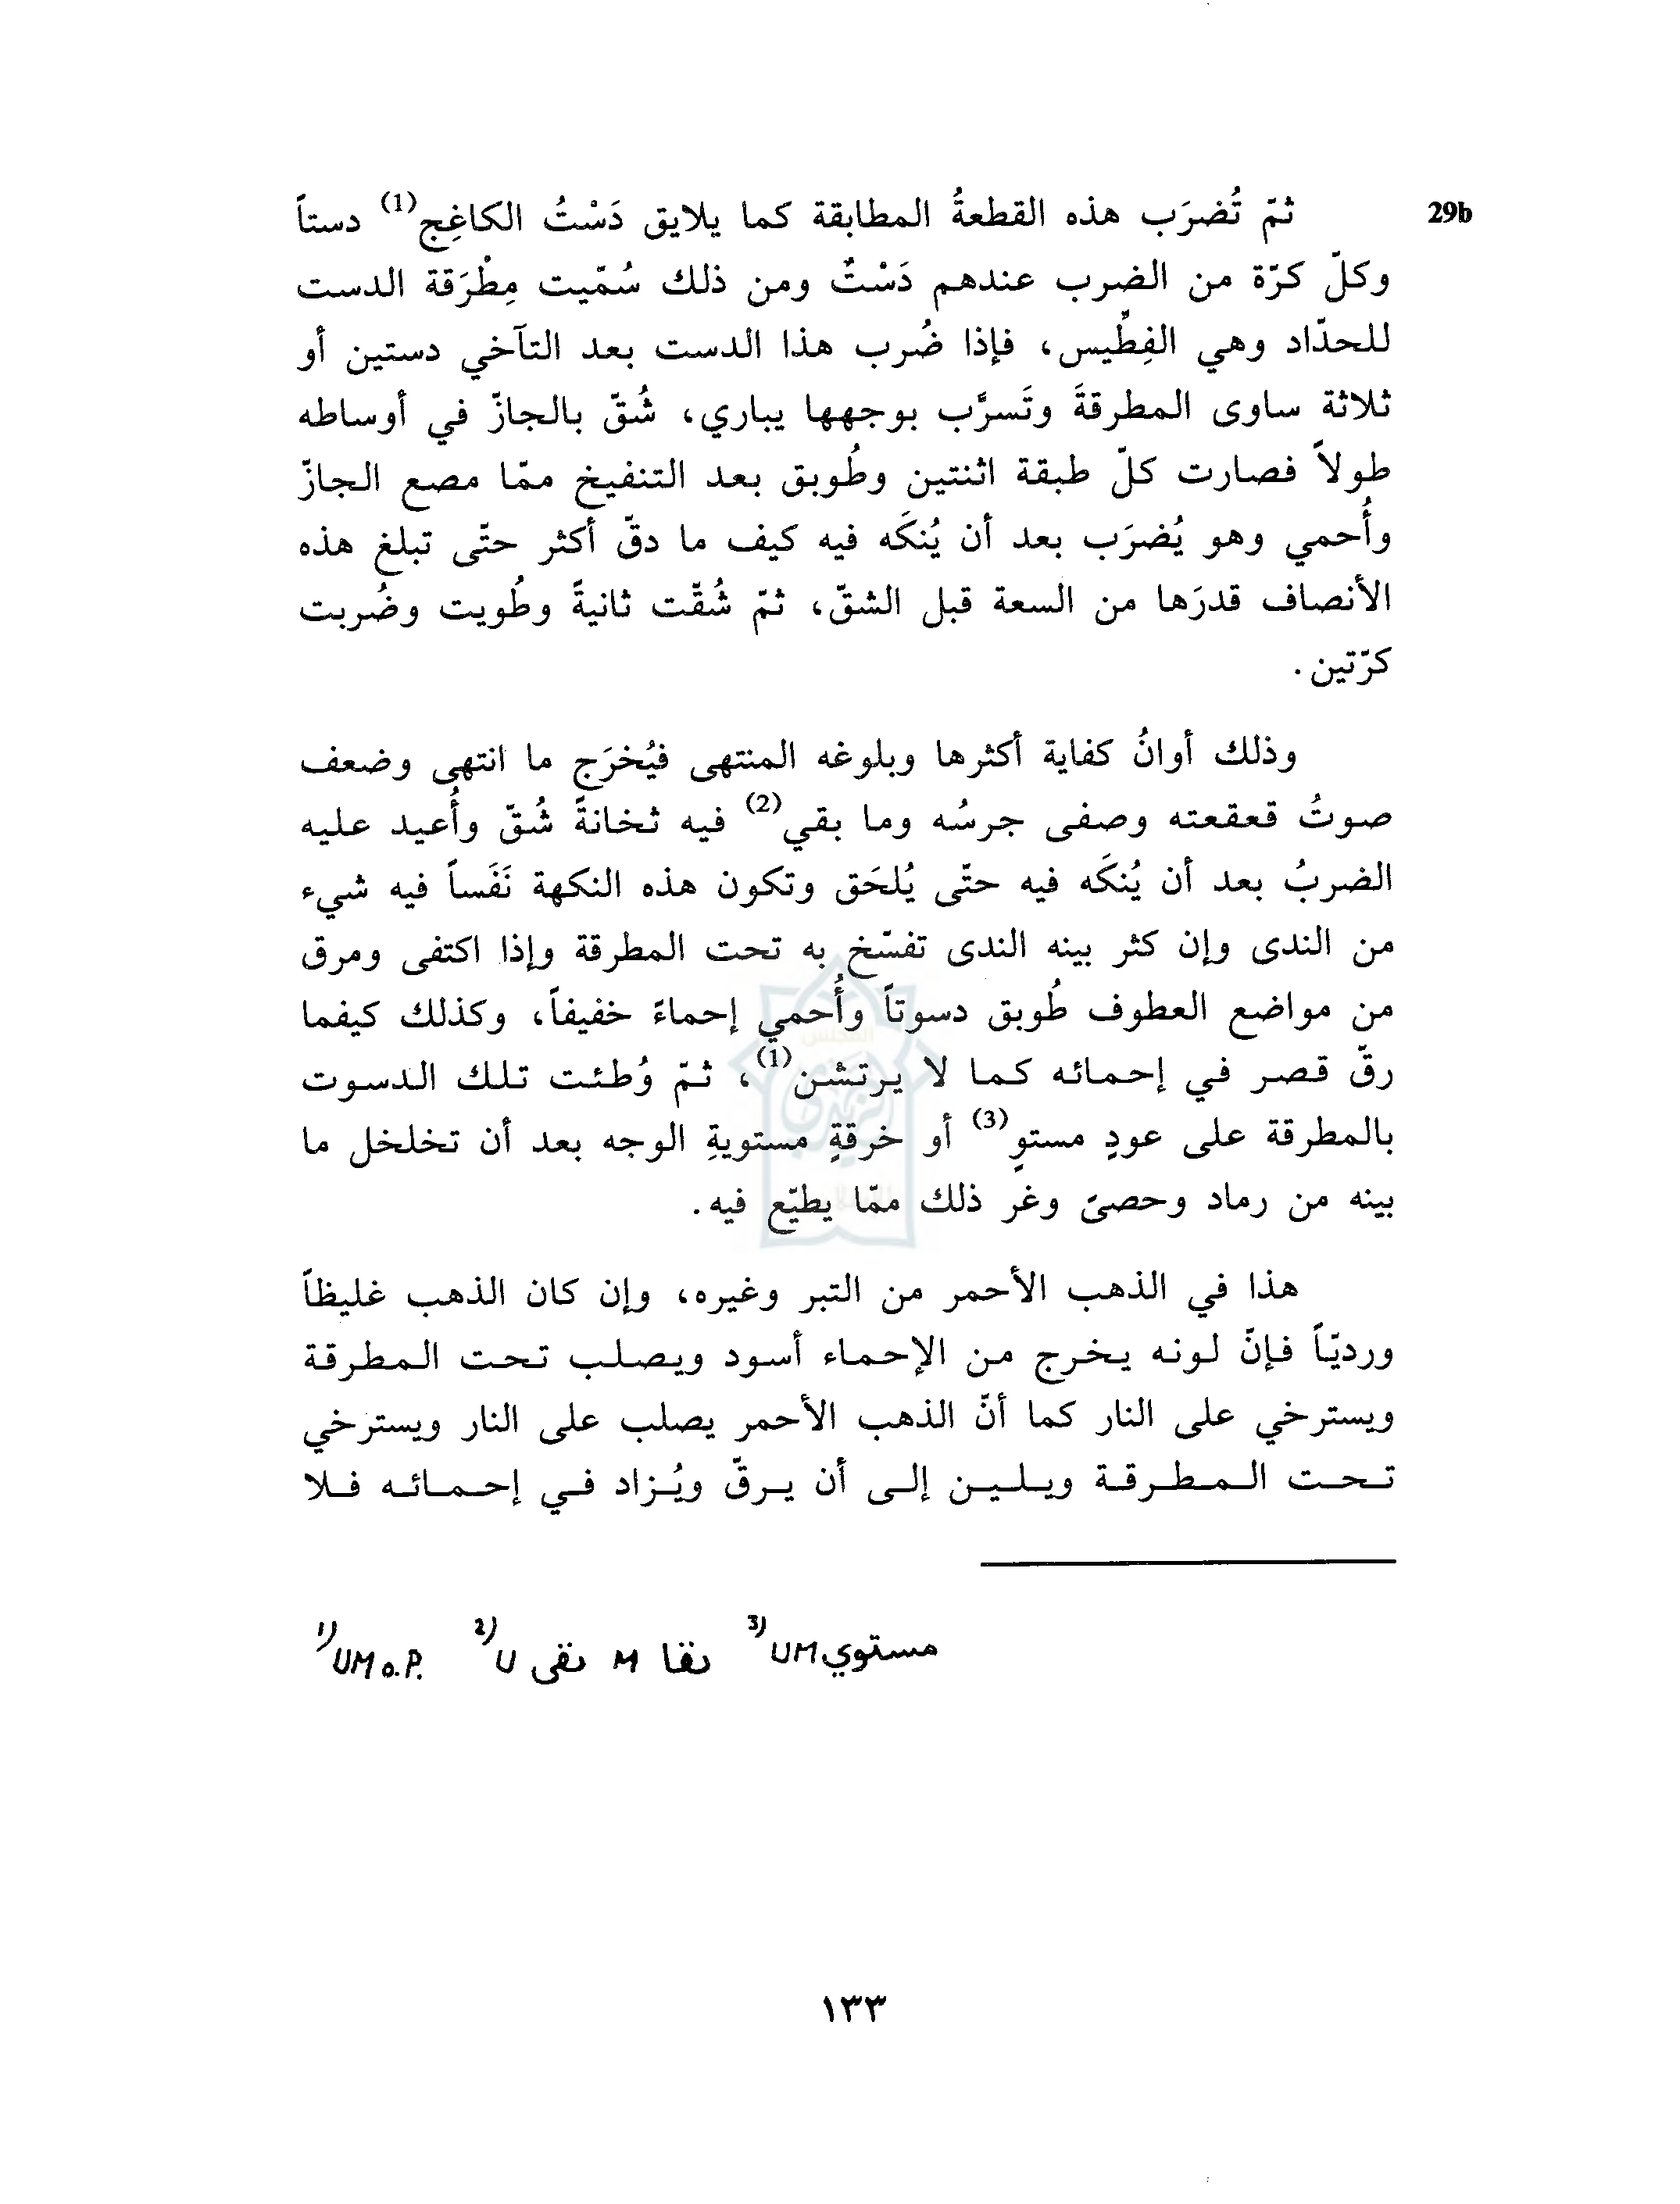 29b
ثمّ تُضرَب هذه القطعةُ المطابقة كما يلايق دَسْتُ الكاغِج(1) دستاً
وكلّ كرّة من الضرب عندهم دَسْتٌ ومن ذلك سُمّيت مِطْرَقة الدست
للحدّاد وهي الفِطِّيس، فإذا ضُرب هذا الدست بعد التآخي دستين أو
ثلاثة ساوى المطرقةَ وتَسرَّب بوجهها يباري، شُقّ بالجازّ في أوساطه
طولاً فصارت كلّ طبقة اثنتين وطُوبق بعد التنفيخ ممّا مصع الجازّ
وأُحمي وهو يُضرَب بعد أن يُنكَه فيه كيف ما دقّ أكثر حتّى تبلغ هذه
الأنصاف قدرَها من السعة قبل الشقّ، ثمّ شُقّت ثانيةً وطُويت وضُربت
كرّتين.
وذلك أوانُ كفاية أكثرها وبلوغه المنتهى فيُخرَج ما انتهى وضعف
صوتُ قعقعته وصفى جرسُه وما بقي(2) فيه ثخانةً شُقّ وأُعيد عليه
الضربُ بعد أن يُنكَه فيه حتّى يُلحَق وتكون هذه النكهة نَفَساً فيه شيء
من الندى وإن كثر بينه الندى تفسّخ به تحت المطرقة وإذا اكتفى ومرق
من مواضع العطوف طُوبق دسوتاً وأُحمي إحماءً خفيفاً، وكذلك كيفما
رقّ قصر في إحمائه كما لا يرتشن(1)، ثمّ وُطئت تلك الدسوت
بالمطرقة على عودٍ مستوٍ(3) أو خرقةٍ مستويةِ الوجه بعد أن تخلخل ما
بينه من رماد وحصىً وغر ذلك ممّا يطيّع فيه.
هذا في الذهب الأحمر من التبر وغيره، وإن كان الذهب غليظاً
ورديّاً فإنّ لونه يخرج من الإحماء أسود ويصلب تحت المطرقة
ويسترخي على النار كما أنّ الذهب الأحمر يصلب على النار ويسترخي
تحت المطرقة ويلين إلى أن يرقّ ويُزاد في إحمائه فلا
1) UM o.P. 2) U نقى M نقا 3) UM مستوي
١٣٣